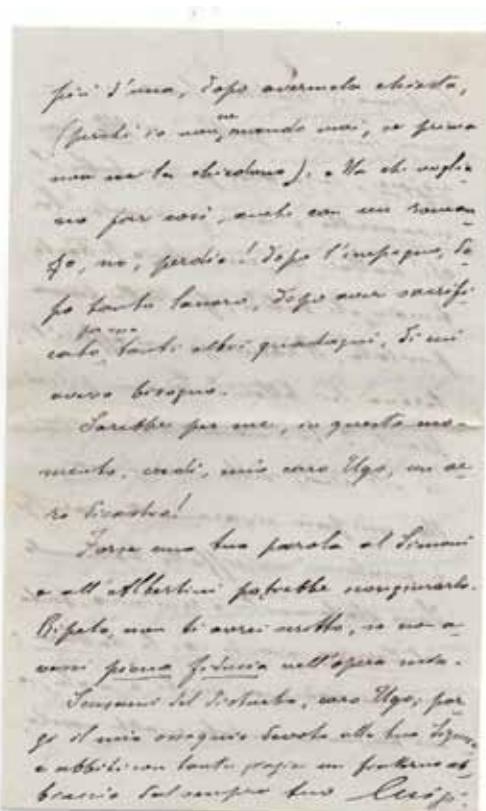 più d'una, dopo avermela chiesta,
(perché io non ne mando mai, se prima
non me la chiedono). Ma che voglia-
no far così, anche con un roman-
zo, no, perdio! dopo l'impegno, do-
po tanto lavoro, dopo aver sacrifi-
cato tanti altri guadagni, di cui
avevo bisogno.
Sarebbe per me, in questo mo-
mento, credi, mio caro Ugo, un ve-
ro disastro!
Forse una tua parola al Simoni
e all'Albertini potrebbe scongiurarlo.
Ripeto, non ti avrei scritto, se non a-
vessi piena fiducia nell'opera mia.
Scusami del disturbo, caro Ugo; por-
gi il mio ossequio devoto alla tua Signora
e abbiti con tante grazie un fraterno ab-
braccio dal sempre tuo Luigi